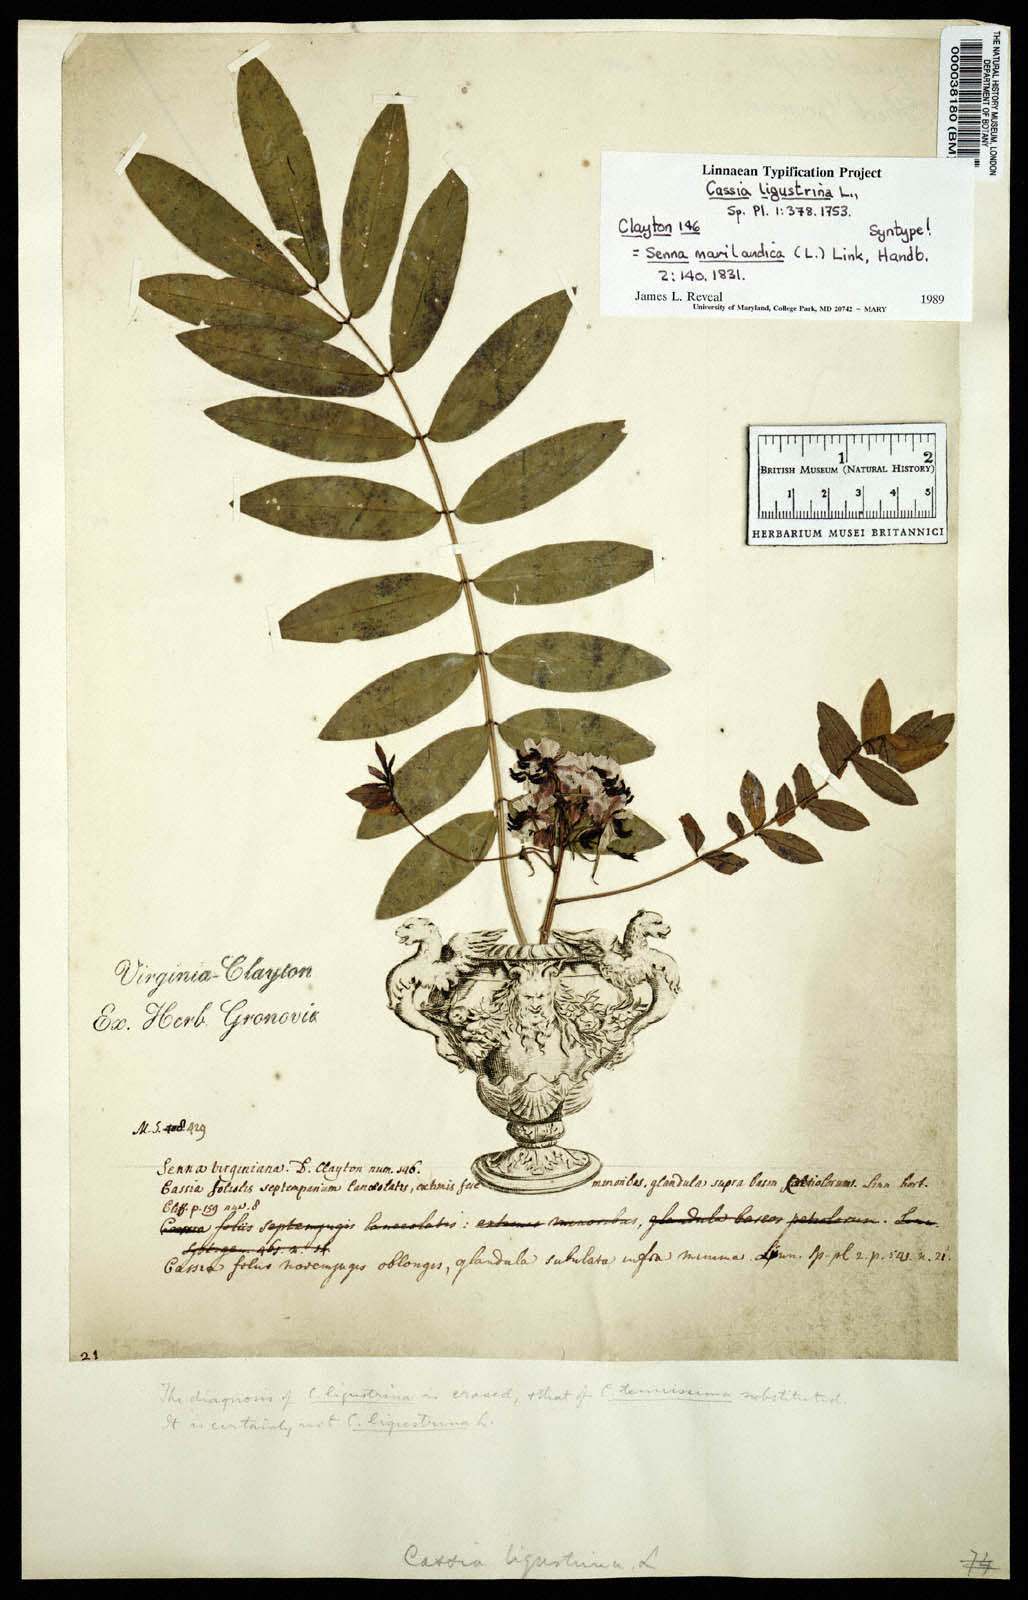 THE NATURAL HISTORY MUSEUM, LONDON
DEPARTMENT OF BOTANY
000038180 (BM)
Linnaean Typification Project
Cassia ligustrina L.,
Sp. Pl. 1:378. 1753.
Clayton 146 Syntype!
= Senna marilandica (L.) Link, Handb.
2:140. 1831.
James L. Reveal 1989
University of Maryland, College Park, MD 20742 – MARY
1 2
BRITISH MUSEUM (NATURAL HISTORY)
1 2 3 4 5
HERBARIUM MUSEI BRITANNICI
Virginia-Clayton
Ex. Herb. Gronovii
M.S. 429
Senna virginiana. D. Clayton num. 146.
Cassia foliolis septemparium lanceolatis, extimis minoribus, glandula supra basin petiolorum. Linn. hort.
Cliff. p. 159 num. 8
Cassia foliis septemjugis lanceolatis: extimis minoribus, glandula baseos petiolorum. Linn.
Cassia foliis novemjugis oblongis, glandula subulata infra minima. Linn. Sp. pl. 2. p. 541. n. 21
21
The diagnosis of C. ligustrina is erased, & that of C. tenuissima substituted.
It is certainly not C. ligustrina L.
Cassia ligustrina. L
74